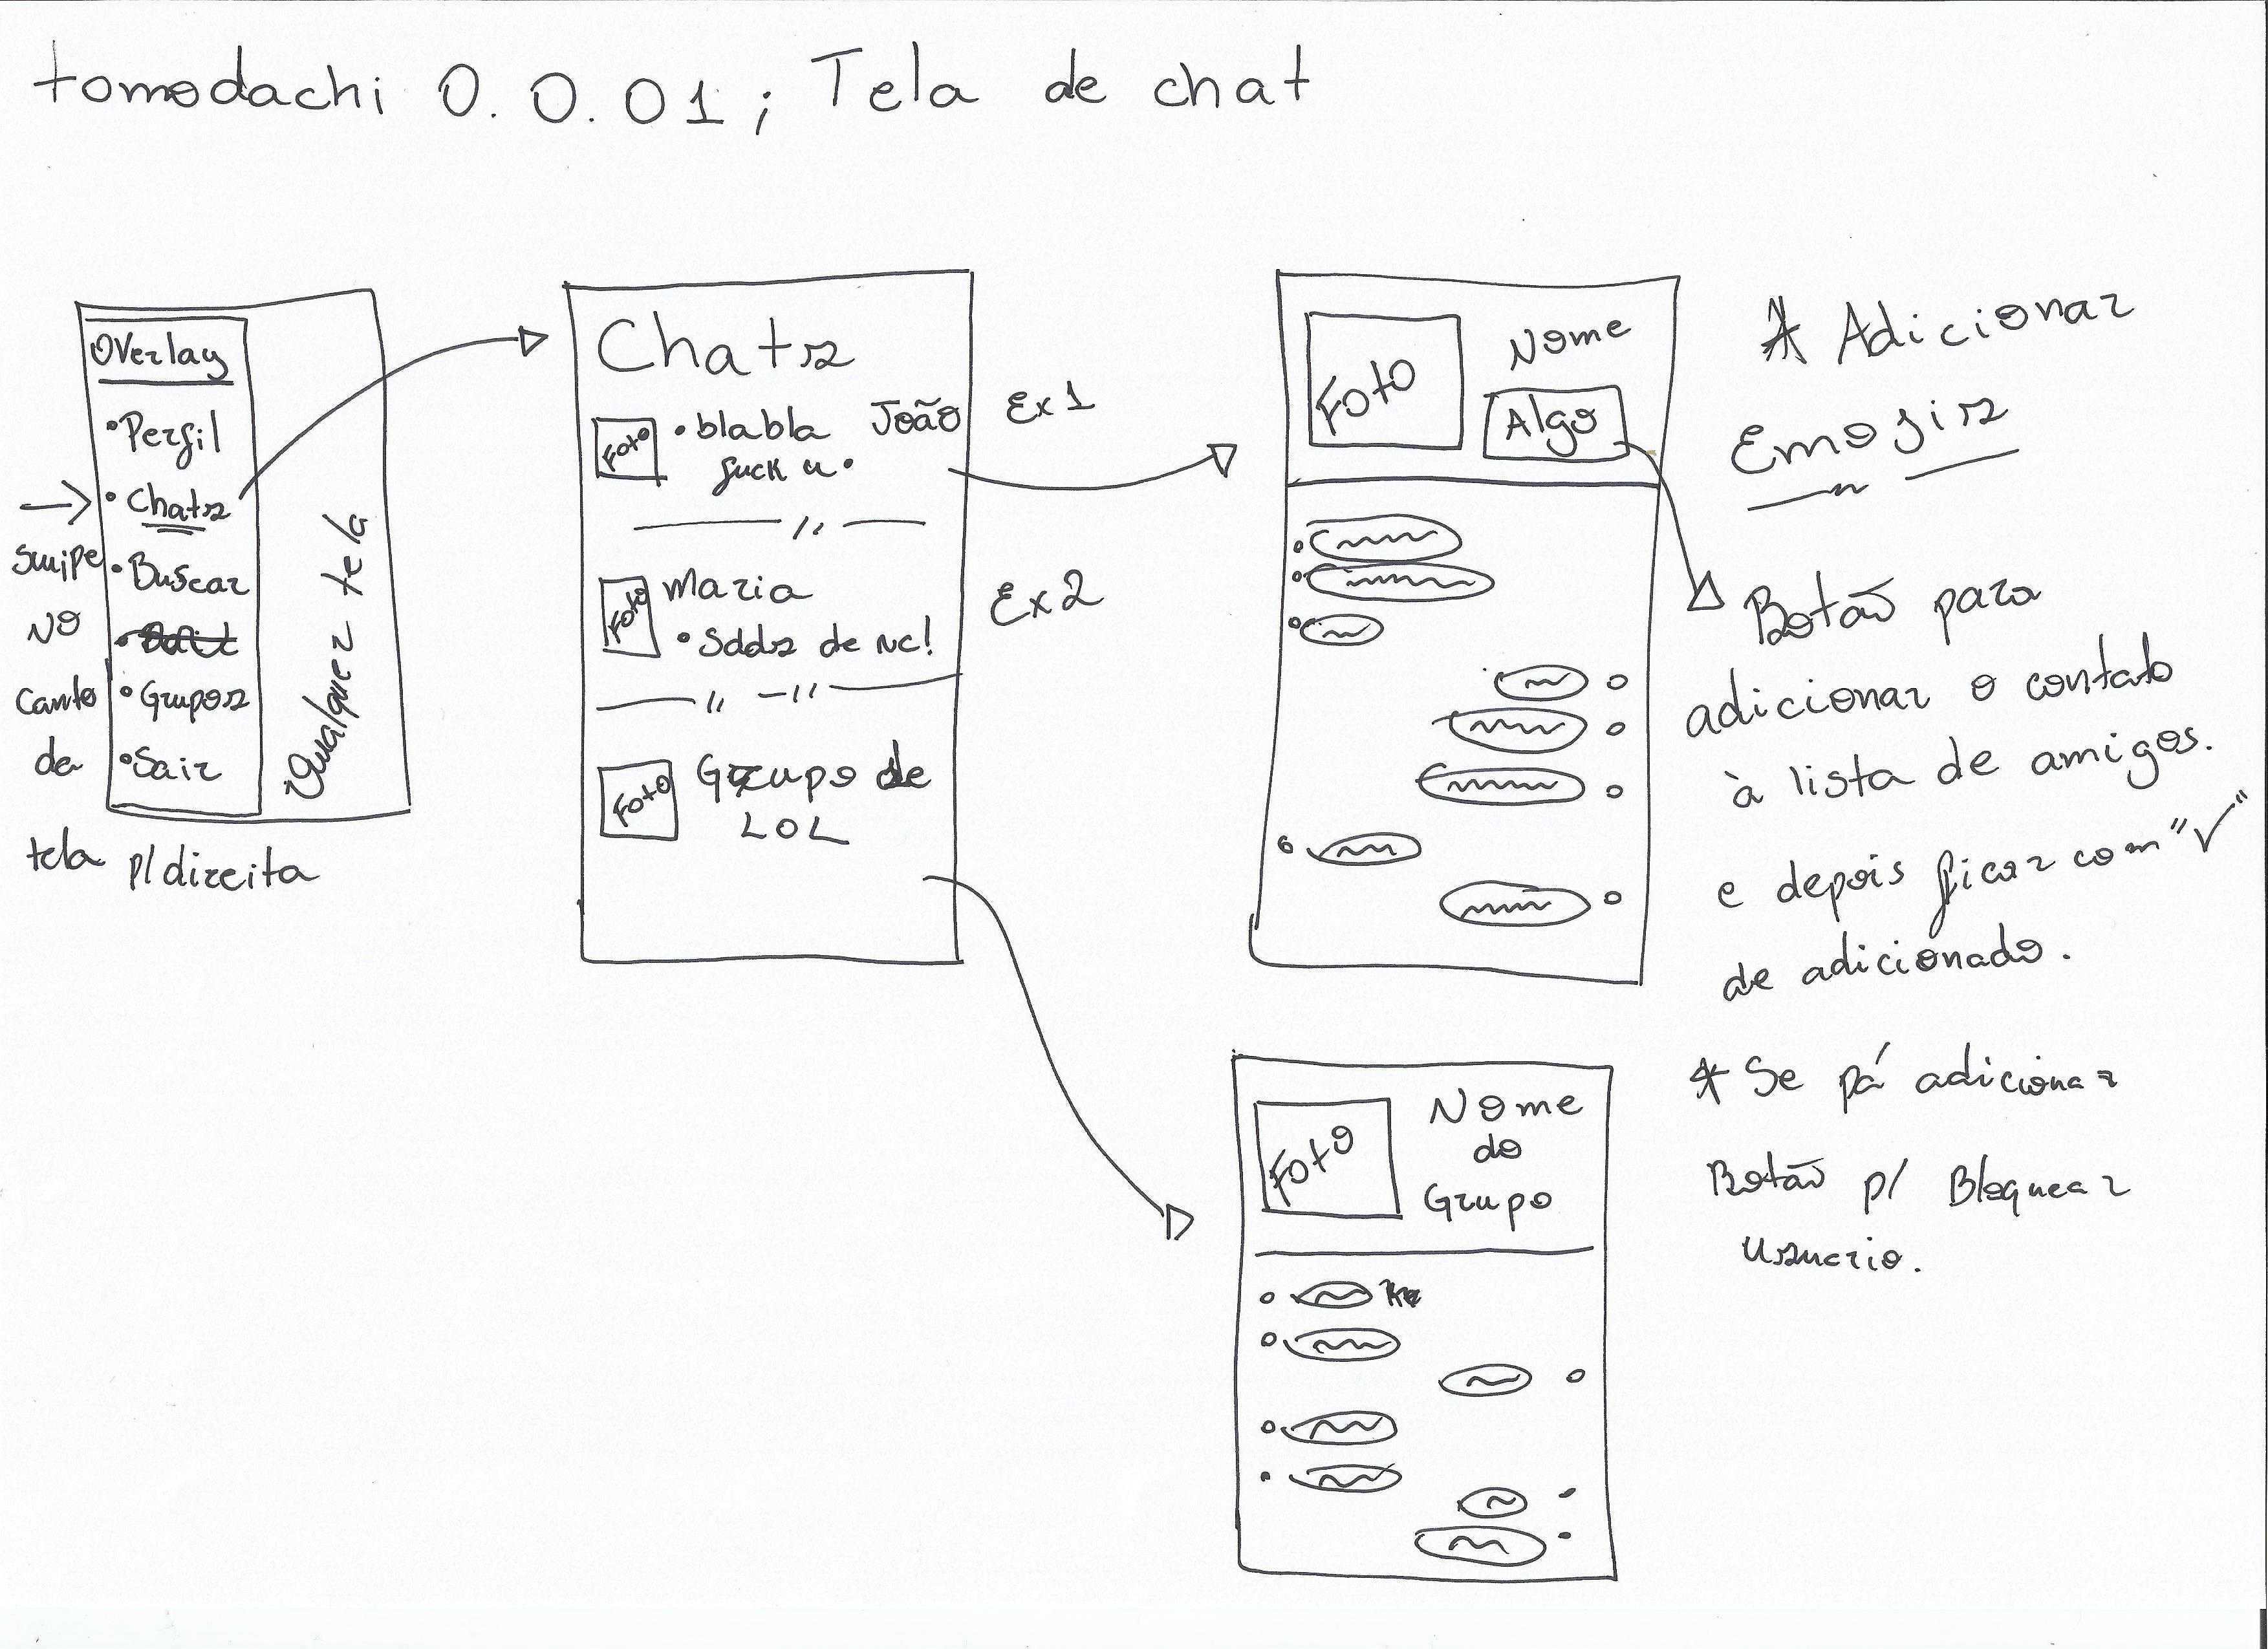 tomodachi 0.0.01; Tela de chat
Overlay
• Perfil
• Chats
• Buscar
• Grupos
• Sair
Qualquer tela
swipe
no
canto
da
tela p/ direita
Chats
Foto
• blabla João
fuck u •
Ex1
Foto
Maria
• Sdds de vc!
Ex2
Foto
Grupo de
LOL
Foto
Nome
Algo
* Adicionar
Emojis
Botão para
adicionar o contato
à lista de amigos.
e depois ficar com "✓"
de adicionado.
* Se pá adicionar
Botão p/ Bloquear
usuario.
Foto
Nome
do
Grupo